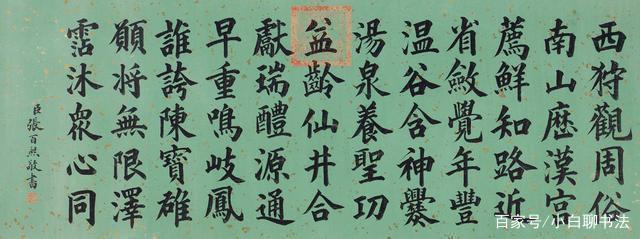 西狩觀周俗
南山歷漢宮
薦鮮知路近
省斂覺年豐
温谷含神爨
湯泉養聖功
益齡仙井合
獻瑞醴源通
早重鳴岐鳳
誰誇陳寶雄
願將無限澤
霑沐眾心同
臣張百熙敬書
百家号/小白聊书法